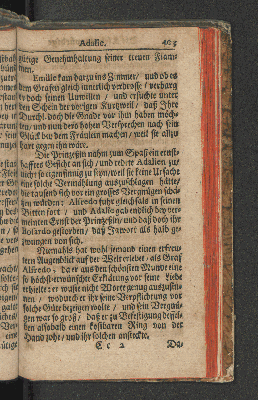 Adalie. 403
gütige Genehmhaltung seiner treuen Flam-
men.
Emilie kam darzu ins Zimmer/ und ob es
dem Grafen gleich innerlich verdrosse/ verbarg
er doch seinen Unwillen/ und ersuchte unter
den Schein der vorigen Kurzweil/ daß Ihre
Durchl. doch die Gnade vor ihn haben möch-
ten/ und nun dero hohes Versprechen nach sein
Glück bey dem Fräulein machen/ weil sie allzu
hart gegen ihn wäre.
Die Prinzeßin nahm zum Spaß ein ernst-
hafftes Gesicht an sich/ und redete Adalien zu/
nicht so eigensinnig zu seyn/ weil sie keine Ursache
eine solche Vermählung auszuschlagen hätte/
die tausend sich vor ein grosses Vergnügen schä-
tzen würden: Alfredo fuhr gleichfals in seinen
Bitten fort/ und Adalie gab endlich bey ver-
meinten Ernst der Prinzeßin/ und daß doch ihr
Rosantes gestorben/ das Jawort als halb ge-
zwungen von sich.
Niemahls hat wohl iemand einen erfreu-
ten Augenblick auf der Welt erlebet/ als Graf
Alfredo/ da er aus den schönsten Munde eine
so höchst-erwünschte Erklärung vor seine Liebe
erhielte: er wuste nicht Worte genug auszusin-
nen/ wodurch er ihr seine Verpflichtung vor
solche Güte bezeigen wolte/ und sein Vergnü-
gen war so groß/ daß er zu Befestigung dessel-
ben alsobald einen kostbaren Ring von der
Hand zohe/ und ihr solchen ansteckte.
Cc 2 Da-